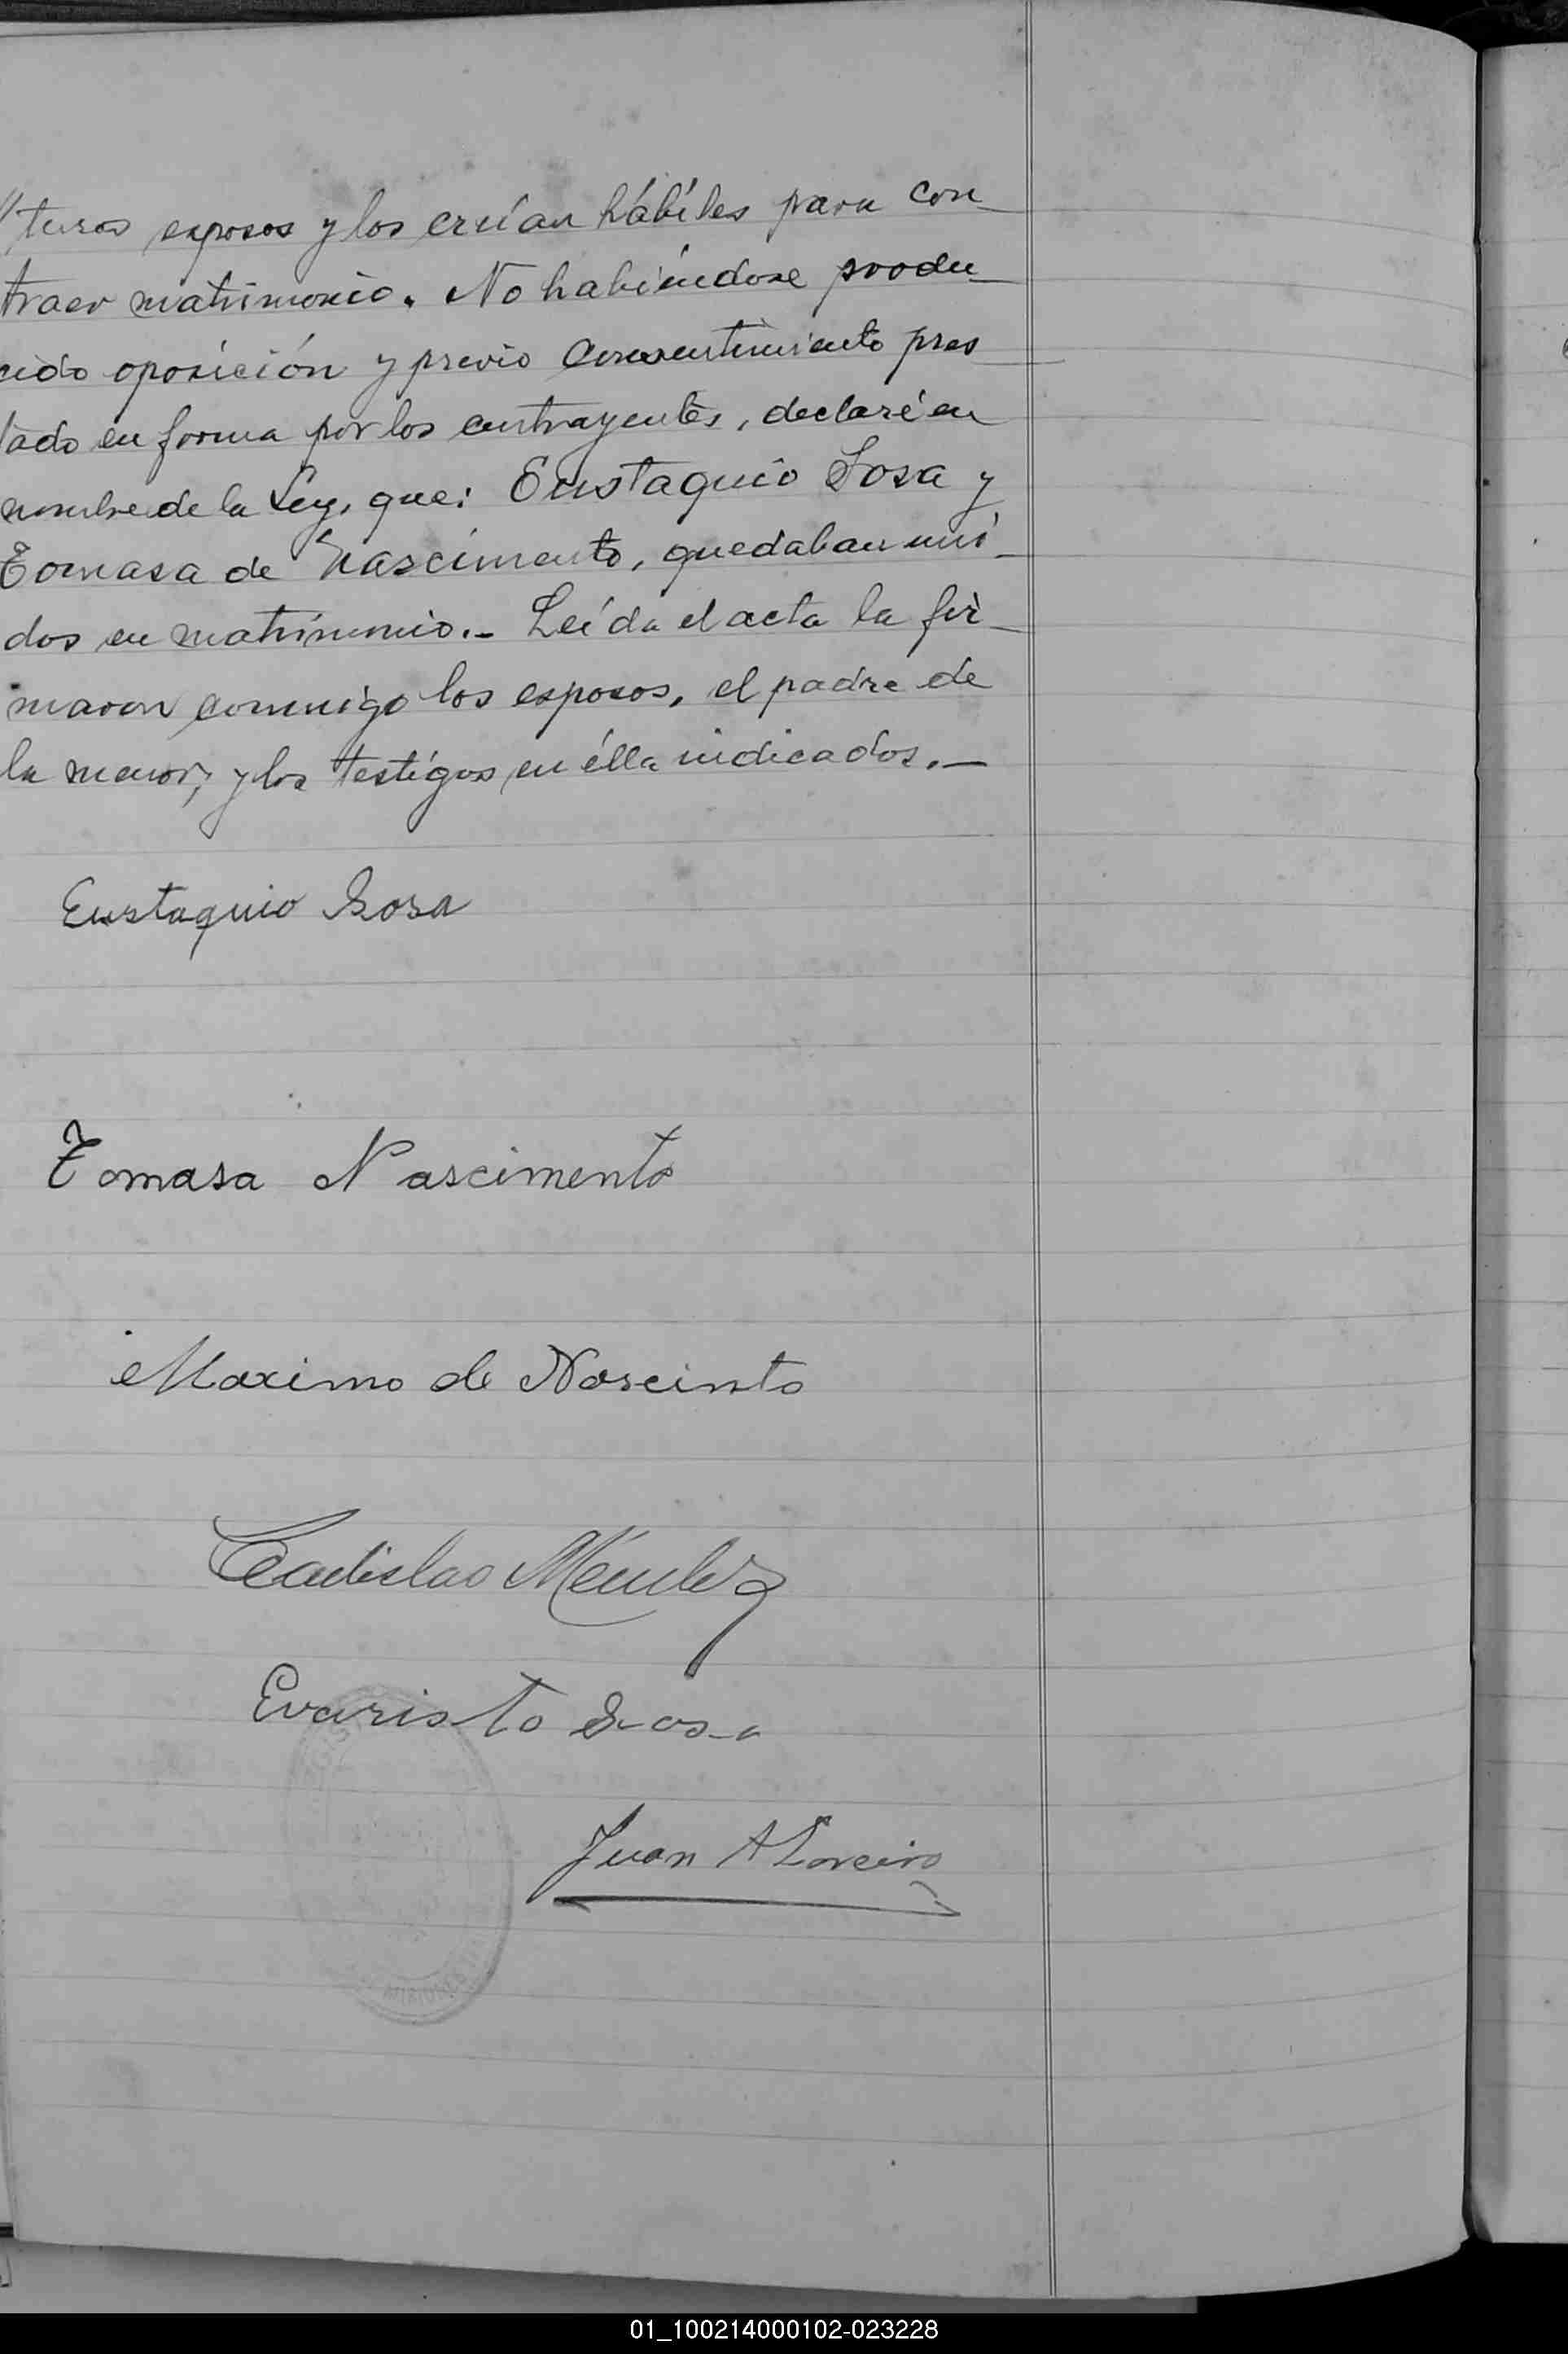 //turos esposos y los creían hábiles para con_
traer matrimonio. No habiéndose produ_
cido oposición y previo consentimiento pres
tado en forma por los contrayentes, declaré en
nombre de la Ley, que: Eustaquio Sosa y
Tomasa de Nascimento, quedaban uni_
dos en matrimonio._ Leída el acta la fir_
maron conmigo los esposos, el padre de
la menor, y los testigos en élla indicados._
Eustaquio Sosa
Tomasa Nascimento
Maximo de Noscimto
Ladislao Méndez
Evaristo Sosa
Juan A Loreiro
MISIONES
01_100214000102-023228